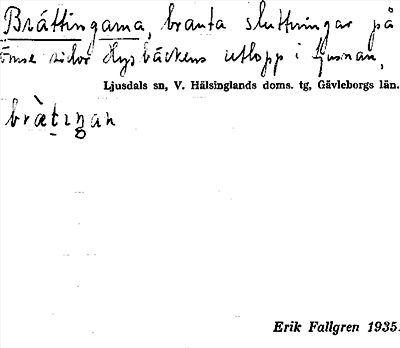 Brättingarna, branta sluttningar på
ömse sidor Hysbäckens utlopp i Ljusnan,
Ljusdals sn, V. Hälsinglands doms. tg, Gävleborgs län.
brætıŋan
Erik Fallgren 1935.